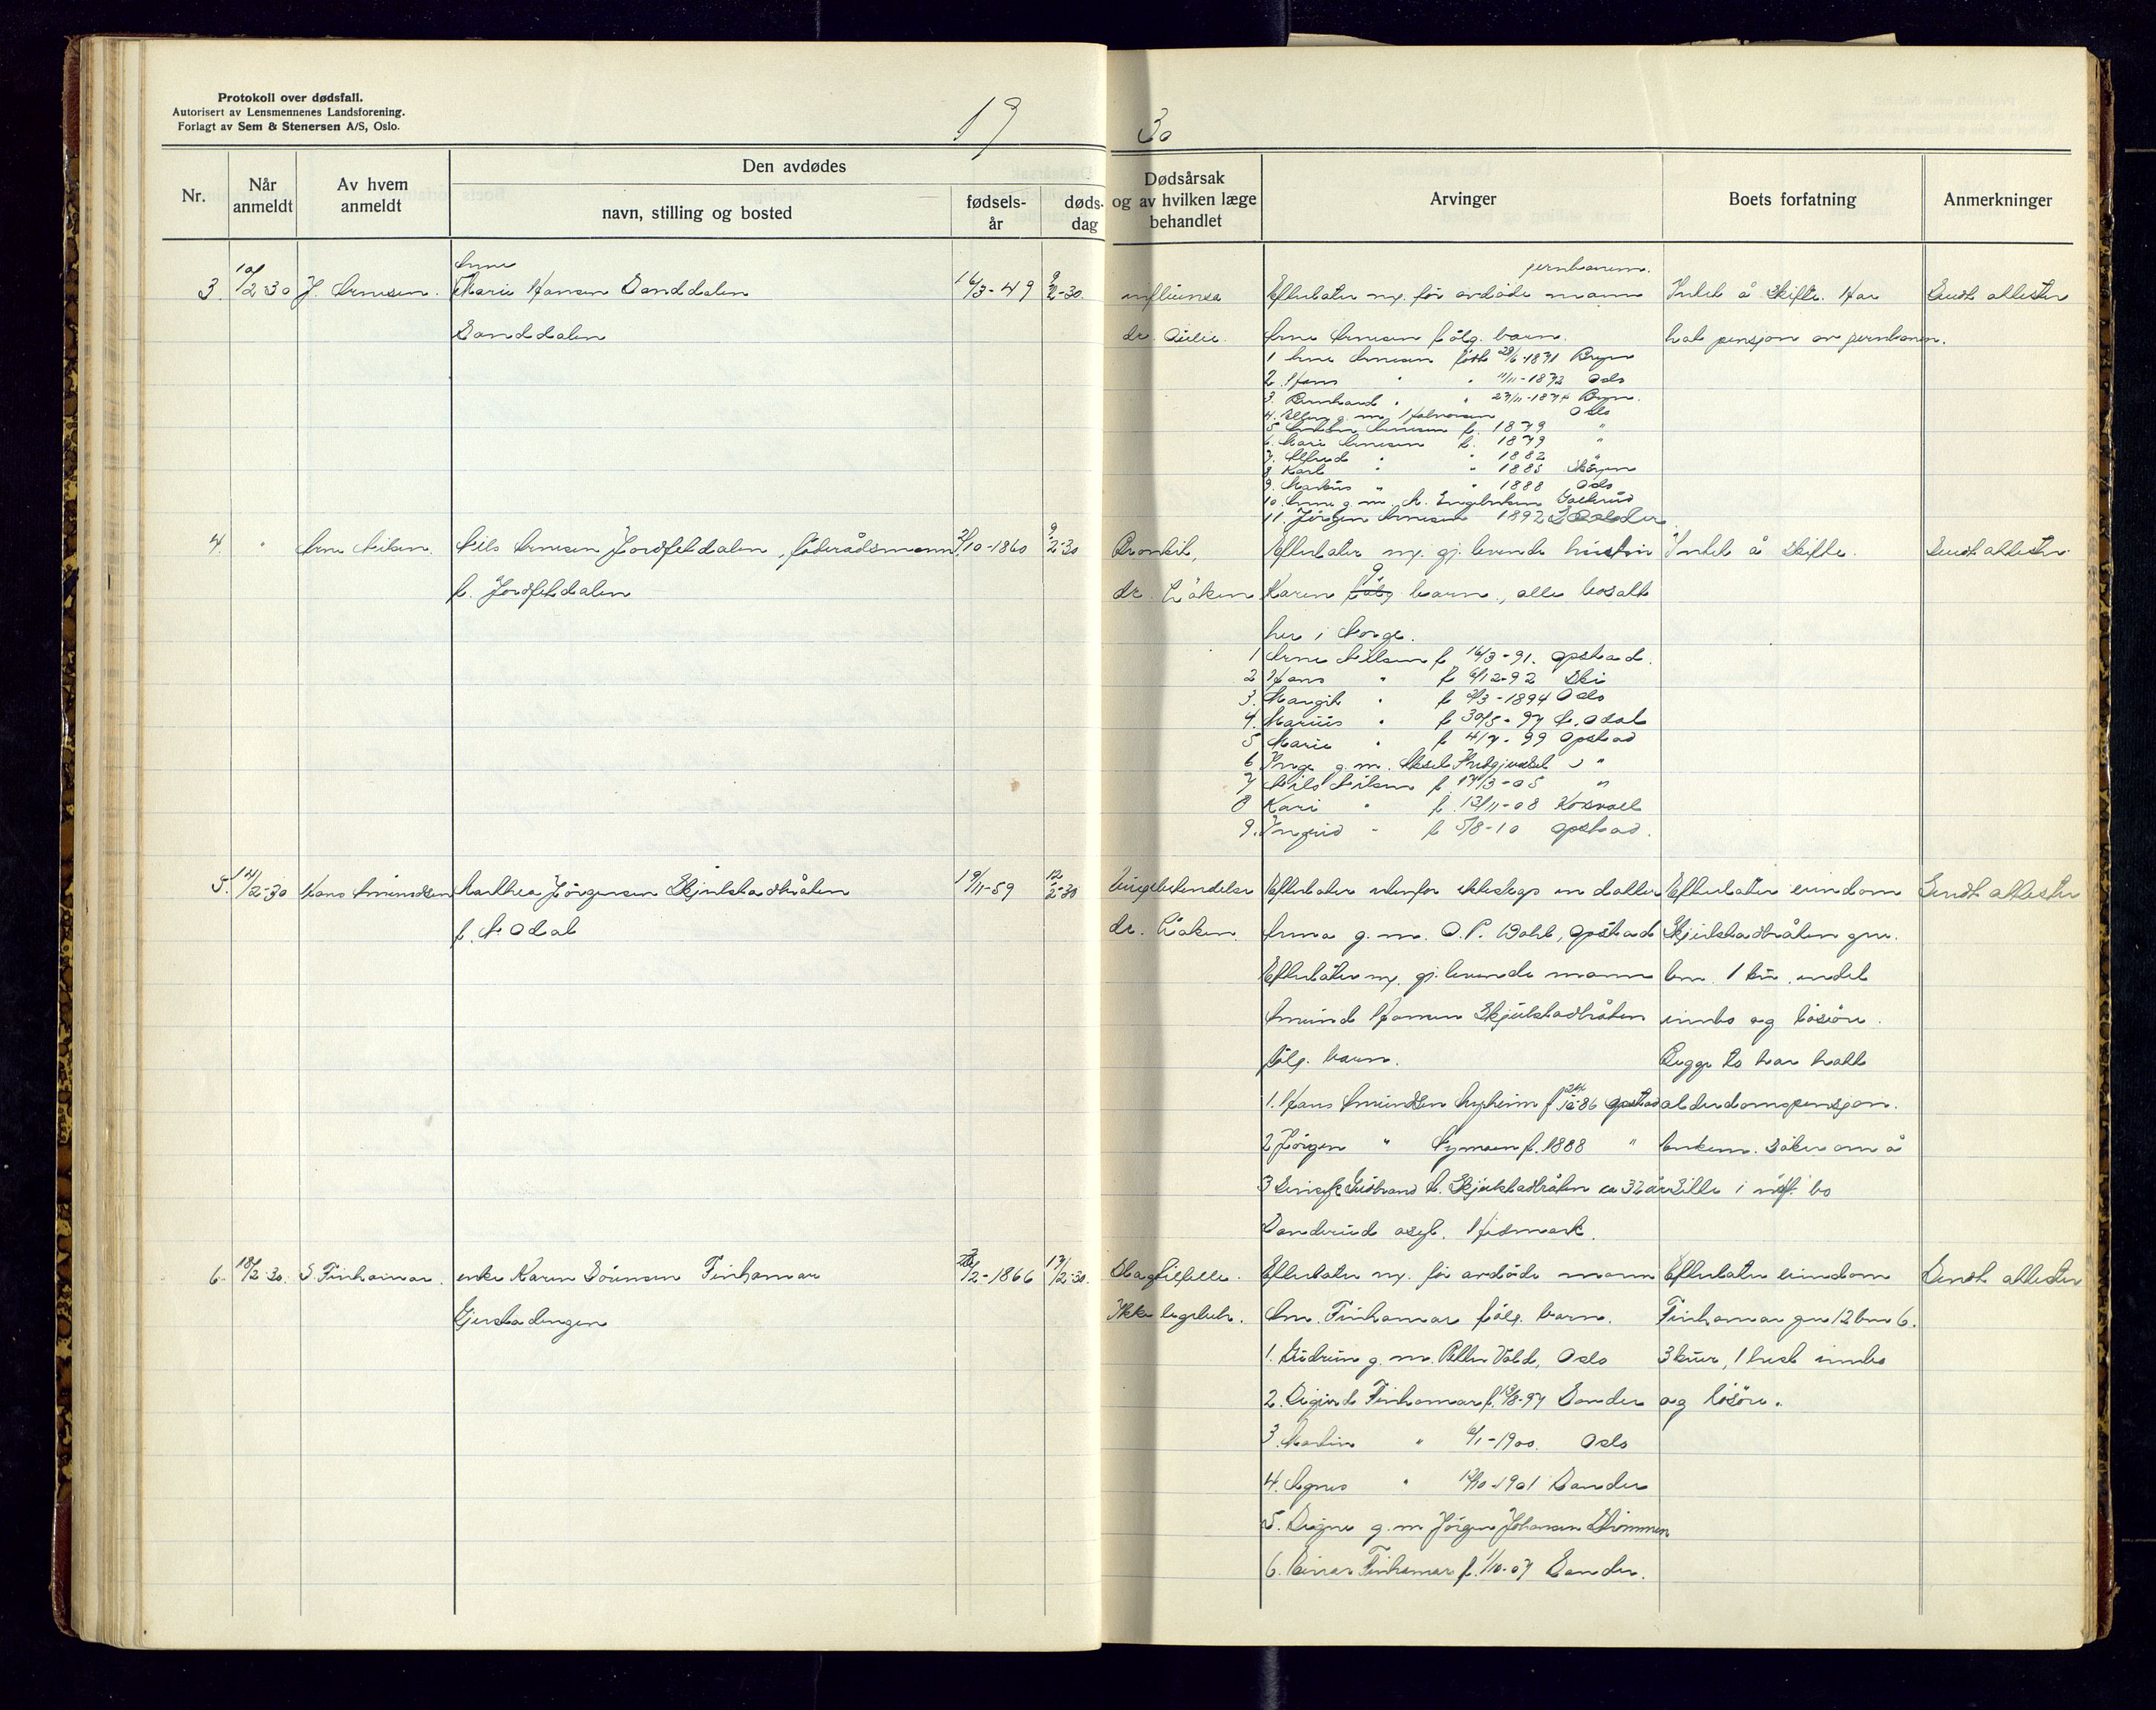 Protokoll over dødsfall.
Autorisert av Lensmennenes Landsforening.
Forlagt av Sem & Stenersen A/S, Oslo.
19 30
Nr.
Når anmeldt
Av hvem anmeldt
Den avdødes
navn, stilling og bosted
fødsels-år
døds-dag
Dødsårsak og av hvilken læge behandlet
Arvinger
Boets forfatning
Anmerkninger
3. 10/2-30 J. Arnesen. Anne Marie Hansen Sanddalen 16/3-49 9/2-30.
Sanddalen
influensa
dr.
jernbanem.
Efterlater m. før avdøde mann
Arne Arnesen følg. barn.
1 Arne Arnesen født 28/6-1871 Bryn
2. Hans " " 11/11-1872 Oslo
3. Bernhard " " 27/11-1874 Bryn.
4. Ellen g. m. Halvorsen Oslo
5 Arnesen f. 1879 "
6. Marie Arnesen f. 1879 "
7. Alfred " " 1882 "
8 Karl " " 1885
9. Markus " " 1888 Oslo
10. Anne g. m. A. Engebretsen
11. Jørgen Arnesen 1892 Sander
Intet å skifte. Har
hat pensjon av jernbanen.
Sendt attester
4. " Arne Nilsen. Nils Arnesen Jordfetdalen, føderådsmann 2/10-1860 9/2-30
f. Jordfetdalen
Bronkit,
dr. Løken
Efterlater m. gj. levende hustru
Karen 9 følg barn, alle bosatt
her i Norge.
1 Arne Nilsen f 16/3-91. Opstad.
2 Hans " f 6/12-92 Ski
3. Margit " f 2/3-1894 Oslo
4. Marius " f 30/5-97 N. Odal
5 Marie " f 4/7-99 Opstad
6 Inga g. m. Aksel "
7 Nils Nilsen f. 17/3-05 "
8 Kari " f. 13/11-08
9. Ingrid " f 5/8-10 Opstad.
Intet å skifte.
Sendt attester
5. 14/2-30 Hans Amundsen Marthea Jørgensen Skjulstadbråten 19/11-59 12/2-30
f. N. Odal
Lungebetendelse
dr. Løken.
Efterlater utenfor ekteskap en datter
Anna g. m. O. P. Dahl, Opstad
Efterlater m. gj. levende mann
Amund Hansen Skjulstadbråten
følg. barn.
1. Hans Amundsen Nyheim f 24/12-86 Opstad
2 Jørgen " Nymoen f. 1888 "
3 Gudbrand A. Skjulstadbråten ca 32 år
Sanderud asyl. Hedmark.
Efterlater eiendom
Skjulstadbråten gnr.
bnr. 1 ku, endel
innbo og løsøre.
Begge to har hatt
alderdomspensjon.
Enkem. søker om å
sitte i uskift. bo
Sendt attester
6. 18/2-30. S Finhamar. enke Karen Sørensen Finhamar /2-1866 17/2-30.
Gjerstadengen
Slagtilfelle.
Ikke legebeh.
Efterlater m. før avdøde mann
Am. Finhamar følg. barn.
1. Gudrun g. m. Petter Vold, Oslo
2. Sigurd Finhamar f. 13/8-97 Sander
3. Martin " 6/1-1900. Oslo
4. Agnes " 12/10-1901 Sander
5. Signe g. m Jørgen Johansen Strømmen
6. Einar Finhamar f. 1/10-07 Sander.
Efterlater eiendom
Finhamar gnr 12 bnr 6.
3 kuer, 1 hest innbo
og løsøre.
Sendt attester